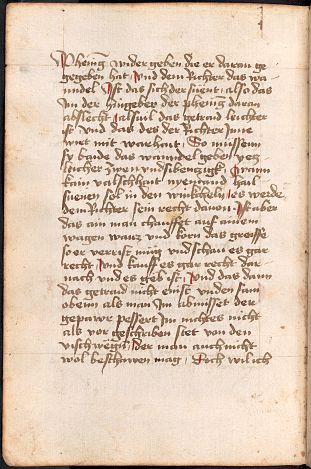 Phening wider geben die er daran ge
gegeben hat / Und dem Richter das wa
ndel Ist das sich der suent / also das
Im der hingeber der phening daran
abslecht / also das getraid leichter
ist Und das des der Richter Inne
wirt mit warhait So muessen
sy baide das wanndel geben yetz
leicher zwen und sibentzigk wann
kain valschhait nyemand hail
suenen sol in den winkheln / es werde
dem Richter sein recht dauon Ist aber
das ain man chauffet auf ainem
wagen waitz und korn das greiffe
so er verrist mug und schau es gar
recht / Und kauff es gar recht dar
nach und es geb ist / Und das dann
das getraid nicht enist unden sam
obenn als man Im abmisset der
gepawr pessert Im nichtes nicht
als vor geschriben stet von den
vischwegn / der man auch nicht
wol beschawen mag / Doch wil ich